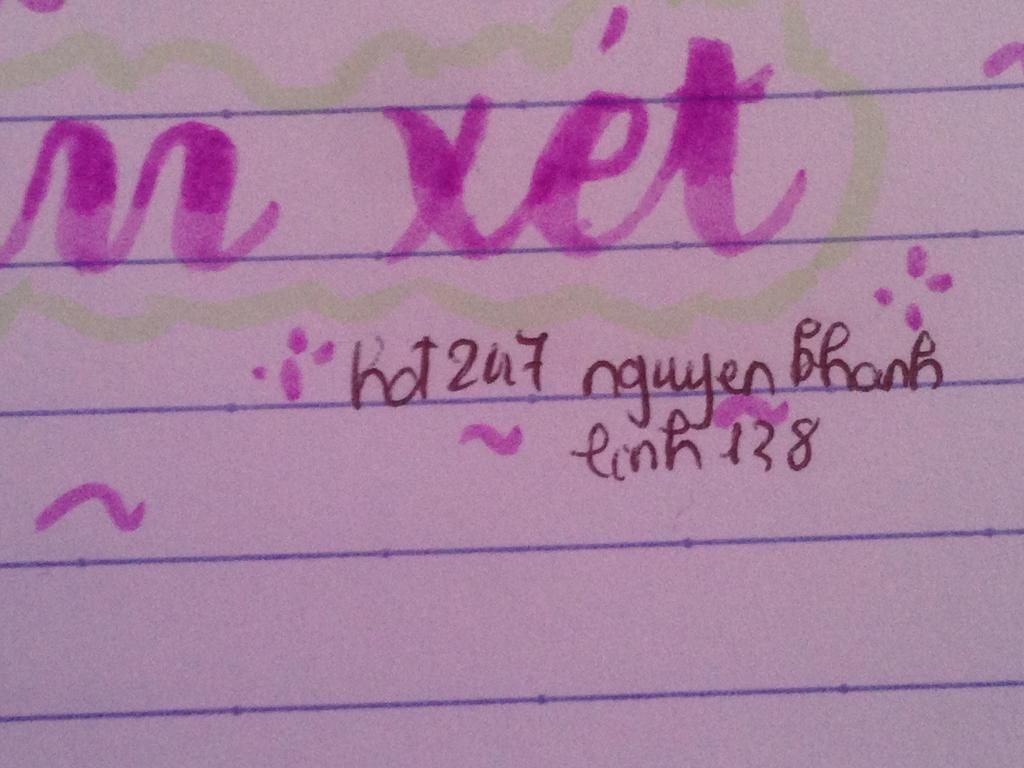 n xét
hdt247 nguyen khanh
linh 138